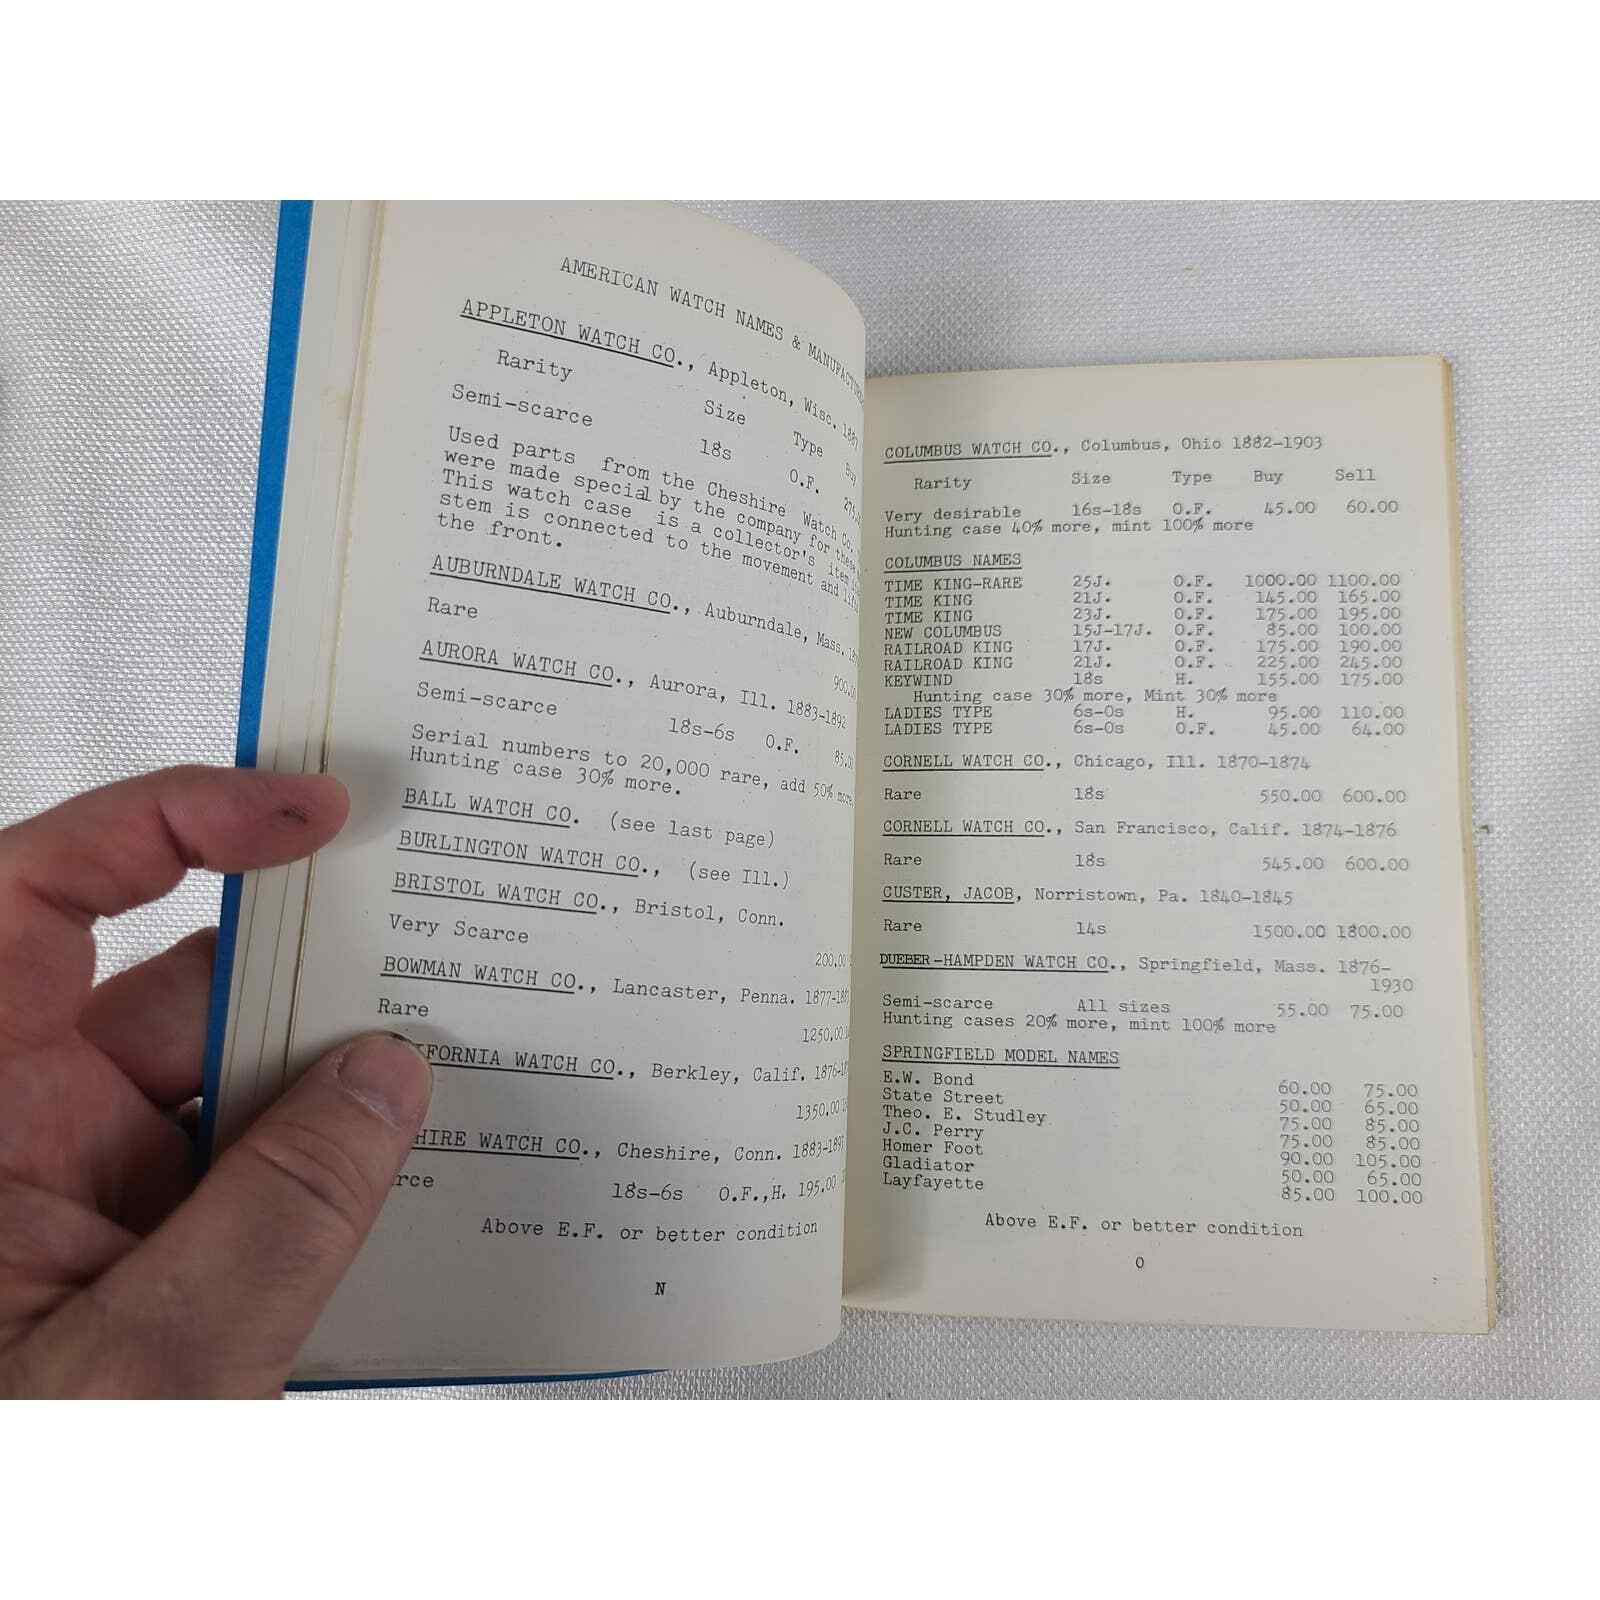 AMERICAN WATCH NAMES &
APPLETON WATCH CO., Appleton, Wisc. 1887
Rarity Size Type Buy
Semi-scarce 18s O.F.
Used parts from the Cheshire Watch Co.
were made special by the company for these
This watch case is a collector's item
stem is connected to the movement and
the front.
AUBURNDALE WATCH CO., Auburndale, Mass.
Rare 900.00
AURORA WATCH CO., Aurora, Ill. 1883-1892
Semi-scarce 18s-6s O.F. 85.00
Serial numbers to 20,000 rare, add 50% more.
Hunting case 30% more.
BALL WATCH CO. (see last page)
BURLINGTON WATCH CO., (see Ill.)
BRISTOL WATCH CO., Bristol, Conn.
Very Scarce 200.00
BOWMAN WATCH CO., Lancaster, Penna.
Rare 1250.00
IFORNIA WATCH CO., Berkley, Calif.
1350.00
HIRE WATCH CO., Cheshire, Conn.
rce 18s-6s O.F.,H. 195.00
Above E.F. or better condition
N
COLUMBUS WATCH CO., Columbus, Ohio 1882-1903
Rarity Size Type Buy Sell
Very desirable 16s-18s O.F. 45.00 60.00
Hunting case 40% more, mint 100% more
COLUMBUS NAMES
TIME KING-RARE 25J. O.F. 1000.00 1100.00
TIME KING 21J. O.F. 145.00 165.00
TIME KING 23J. O.F. 175.00 195.00
NEW COLUMBUS 15J-17J. O.F. 85.00 100.00
RAILROAD KING 17J. O.F. 175.00 190.00
RAILROAD KING 21J. O.F. 225.00 245.00
KEYWIND 18s H. 155.00 175.00
Hunting case 30% more, Mint 30% more
LADIES TYPE 6s-0s H. 95.00 110.00
LADIES TYPE 6s-0s O.F. 45.00 64.00
CORNELL WATCH CO., Chicago, Ill. 1870-1874
Rare 18s 550.00 600.00
CORNELL WATCH CO., San Francisco, Calif. 1874-1876
Rare 18s 545.00 600.00
CUSTER, JACOB, Norristown, Pa. 1840-1845
Rare 14s 1500.00 1800.00
DUEBER-HAMPDEN WATCH CO., Springfield, Mass. 1876-
1930
Semi-scarce All sizes 55.00 75.00
Hunting cases 20% more, mint 100% more
SPRINGFIELD MODEL NAMES
E.W. Bond 60.00 75.00
State Street 50.00 65.00
Theo. E. Studley 75.00 85.00
J.C. Perry 75.00 85.00
Homer Foot 90.00 105.00
Gladiator 50.00 65.00
Layfayette 85.00 100.00
Above E.F. or better condition
O